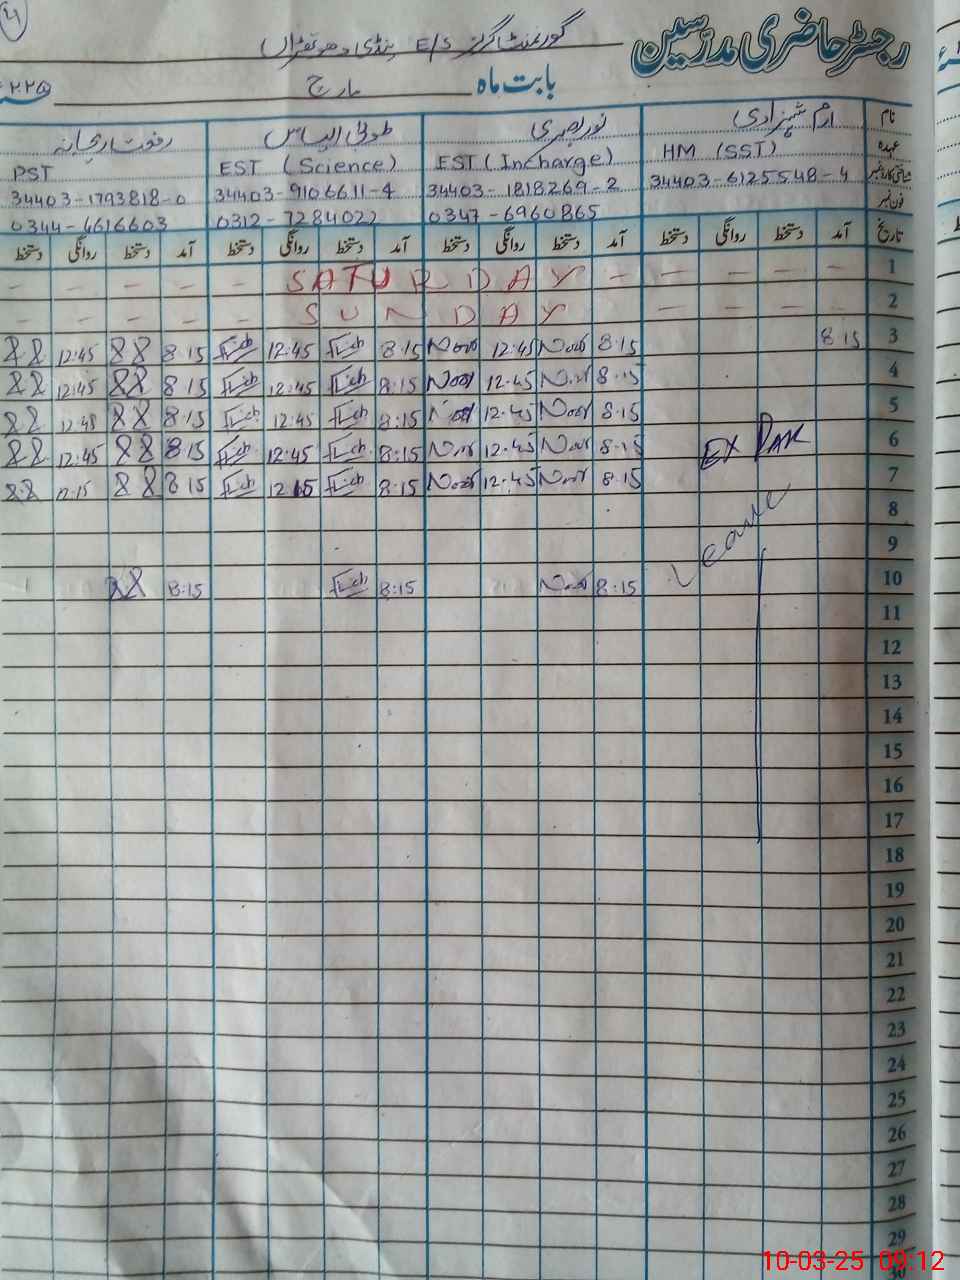 رجسٹر حاضری مدرسین گورنمنٹ گرلز E/S پنڈی
بابت ماہ مارچ ۲۰۲۵ء
نام ارم شہزادی نور بصری طوبیٰ الیاس رفعت ریحانہ
عہدہ HM (SST) EST (Incharge) EST (Science) PST
شناختی کارڈ نمبر 34403-6125548-4 34403-1818269-2 34403-9106611-4 34403-1793818-0
فون نمبر 0347-6960865 0312-7284022 0344-4616603
تاریخ آمد دستخط روانگی دستخط آمد دستخط روانگی دستخط آمد دستخط روانگی دستخط آمد دستخط روانگی دستخط
1 SATURDAY
2 SUNDAY
3 8 15 8:15 Noor 12:45 Noor 8:15 12:45 8.15 12:45
4 8:15 Noor 12:45 Noor 8:15 12:45 8 15 12:45
5 8:15 Noor 12:45 Noor 8:15 12:45 8:15 12:45
6 EX PAK 8:15 Noor 12:45 Noor 8:15 12:45 8:15 12:45
7 8:15 Noor 12:45 Noor 8:15 8 15 12:15
8 Leave
9
10 8:15 Noor 8:15 8:15
11
12
13
14
15
16
17
18
19
20
21
22
23
24
25
26
27
28
29
30
10-03-25 09:12